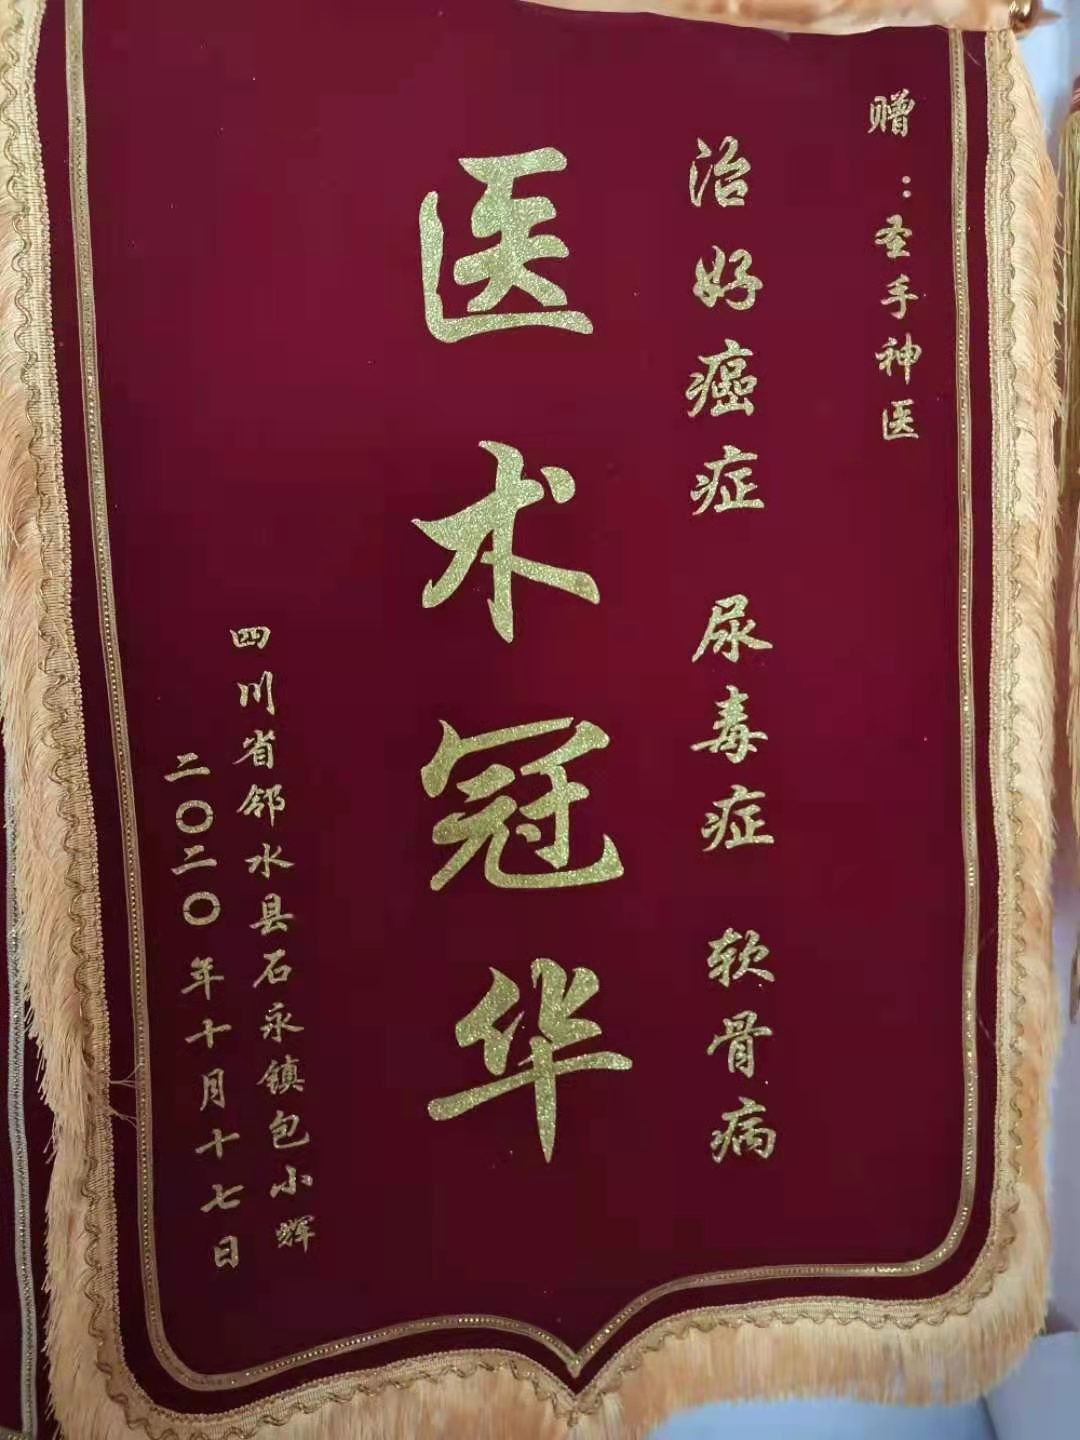 赠：圣手神医
治好癌症 尿毒症 软骨病
医术冠华
四川省邻水县石永镇包小辉
二〇二〇年十月十七日